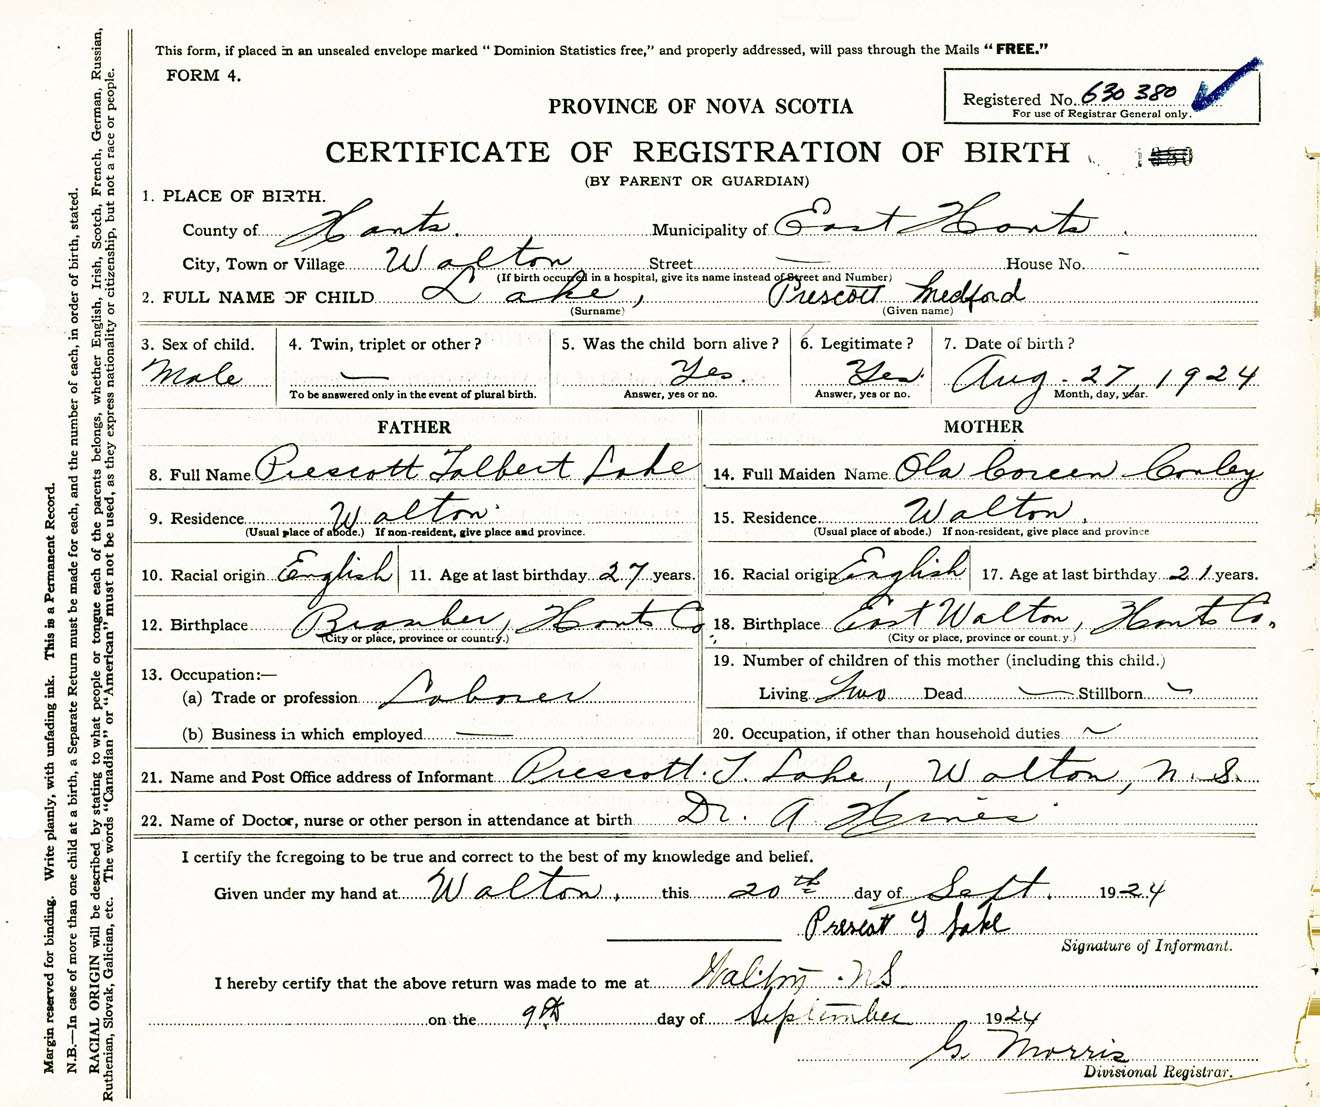 This form, if placed in an unsealed envelope marked "Dominion Statistics free," and properly addressed, will pass through the Mails "FREE."
FORM 4.
Registered No. 630 380
For use of Registrar General only.
PROVINCE OF NOVA SCOTIA
CERTIFICATE OF REGISTRATION OF BIRTH
(BY PARENT OR GUARDIAN)
1. PLACE OF BIRTH.
County of Hants. Municipality of East Hants.
City, Town or Village Walton Street — House No. –
(If birth occurred in a hospital, give its name instead of Street and Number)
2. FULL NAME OF CHILD Lake, Prescott Medford
(Surname) (Given name)
3. Sex of child. 4. Twin, triplet or other? 5. Was the child born alive? 6. Legitimate? 7. Date of birth?
Male — Yes. Yes. Aug. 27, 1924
To be answered only in the event of plural birth. Answer, yes or no. Answer, yes or no. Month, day, year.
FATHER MOTHER
8. Full Name Prescott Talbert Lake 14. Full Maiden Name Ola Coreen Conley
9. Residence Walton 15. Residence Walton,
(Usual place of abode.) If non-resident, give place and province. (Usual place of abode.) If non-resident, give place and province
10. Racial origin English 11. Age at last birthday 27 years. 16. Racial origin English 17. Age at last birthday 21 years.
12. Birthplace Bramber, Hants Co. 18. Birthplace East Walton, Hants Co.
(City or place, province or country.) (City or place, province or country.)
13. Occupation:— 19. Number of children of this mother (including this child.)
(a) Trade or profession Laborer Living Two Dead — Stillborn ~
(b) Business in which employed — 20. Occupation, if other than household duties ~
21. Name and Post Office address of Informant Prescott. T. Lake, Walton, N. S.
22. Name of Doctor, nurse or other person in attendance at birth Dr. A. Hines
I certify the foregoing to be true and correct to the best of my knowledge and belief.
Given under my hand at Walton, this 20th day of Sept. 1924
Prescott T Lake
Signature of Informant.
I hereby certify that the above return was made to me at Walton N S
on the 9th day of September 1924
G. Morris
Divisional Registrar.
Margin reserved for binding. Write plainly, with unfading ink. This is a Permanent Record.
N.B.—In case of more than one child at a birth, a Separate Return must be made for each, and the number of each, in order of birth, stated.
RACIAL ORIGIN will be described by stating to what people or tongue each of the parents belongs, whether English, Irish, Scotch, French, German, Russian,
Ruthenian, Slovak, Galician, etc. The words "Canadian" or "American" must not be used, as they express nationality or citizenship, but not a race or people.